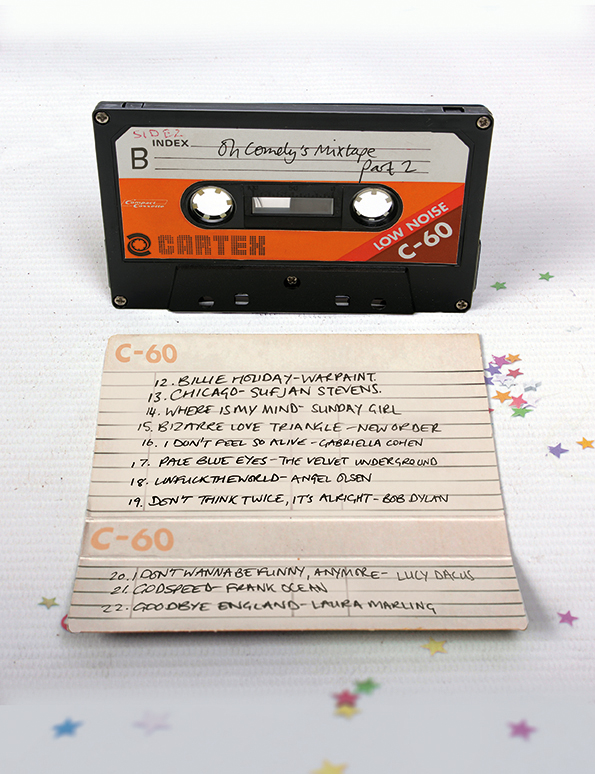 SIDE 2
INDEX
Oh Comely's Mixtape
B
part 2
Compact Cassette
LOW NOISE
CARTEX
C-60
C-60
12. BILLIE HOLIDAY-WARPAINT.
13. CHICAGO- SUFJAN STEVENS.
14. WHERE IS MY MIND- SUNDAY GIRL
15. BIZARRE LOVE TRIANGLE - NEW ORDER
16. I DON'T FEEL SO ALIVE - GABRIELLA COHEN
17. PALE BLUE EYES - THE VELVET UNDERGROUND
18. UNFUCKTHEWORLD - ANGEL OLSEN
19. DON'T THINK TWICE, IT'S ALRIGHT - BOB DYLAN
C-60
20. I DON'T WANNA BE FUNNY, ANYMORE- LUCY DACUS
21. GODSPEED- FRANK OCEAN
22. GOODBYE ENGLAND - LAURA MARLING